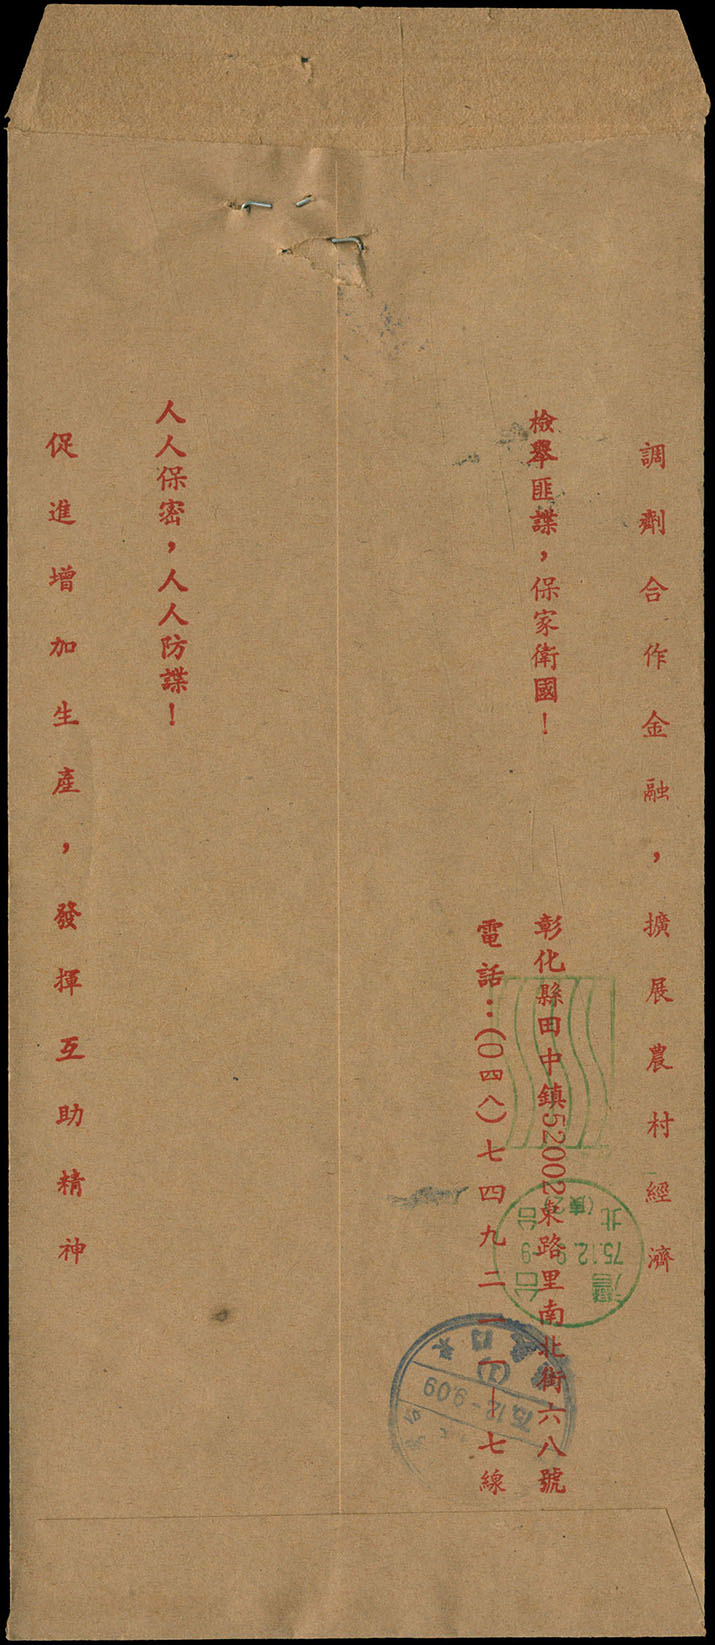 調劑合作金融，擴展農村經濟
檢舉匪諜，保家衛國！
彰化縣田中鎮52002東路里南北街六八號
電話：(〇四八)七四九二一一一七線
人人保密，人人防諜！
促進增加生產，發揮互助精神
台北
75.12.-9